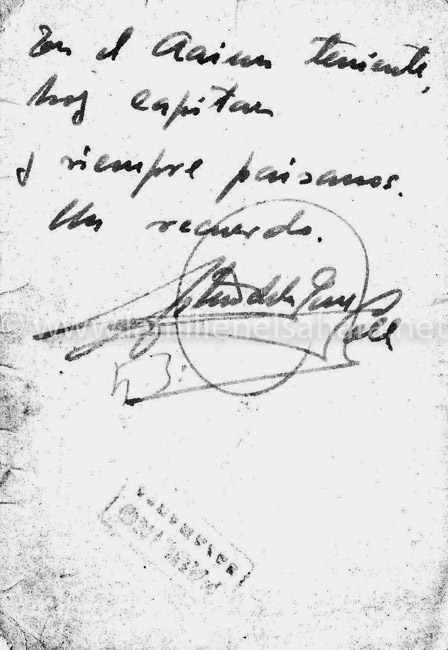 En el Aaiun teniente,
hoy capitan
y siempre paisanos.
Un recuerdo.
www.lamilienelsahara.net